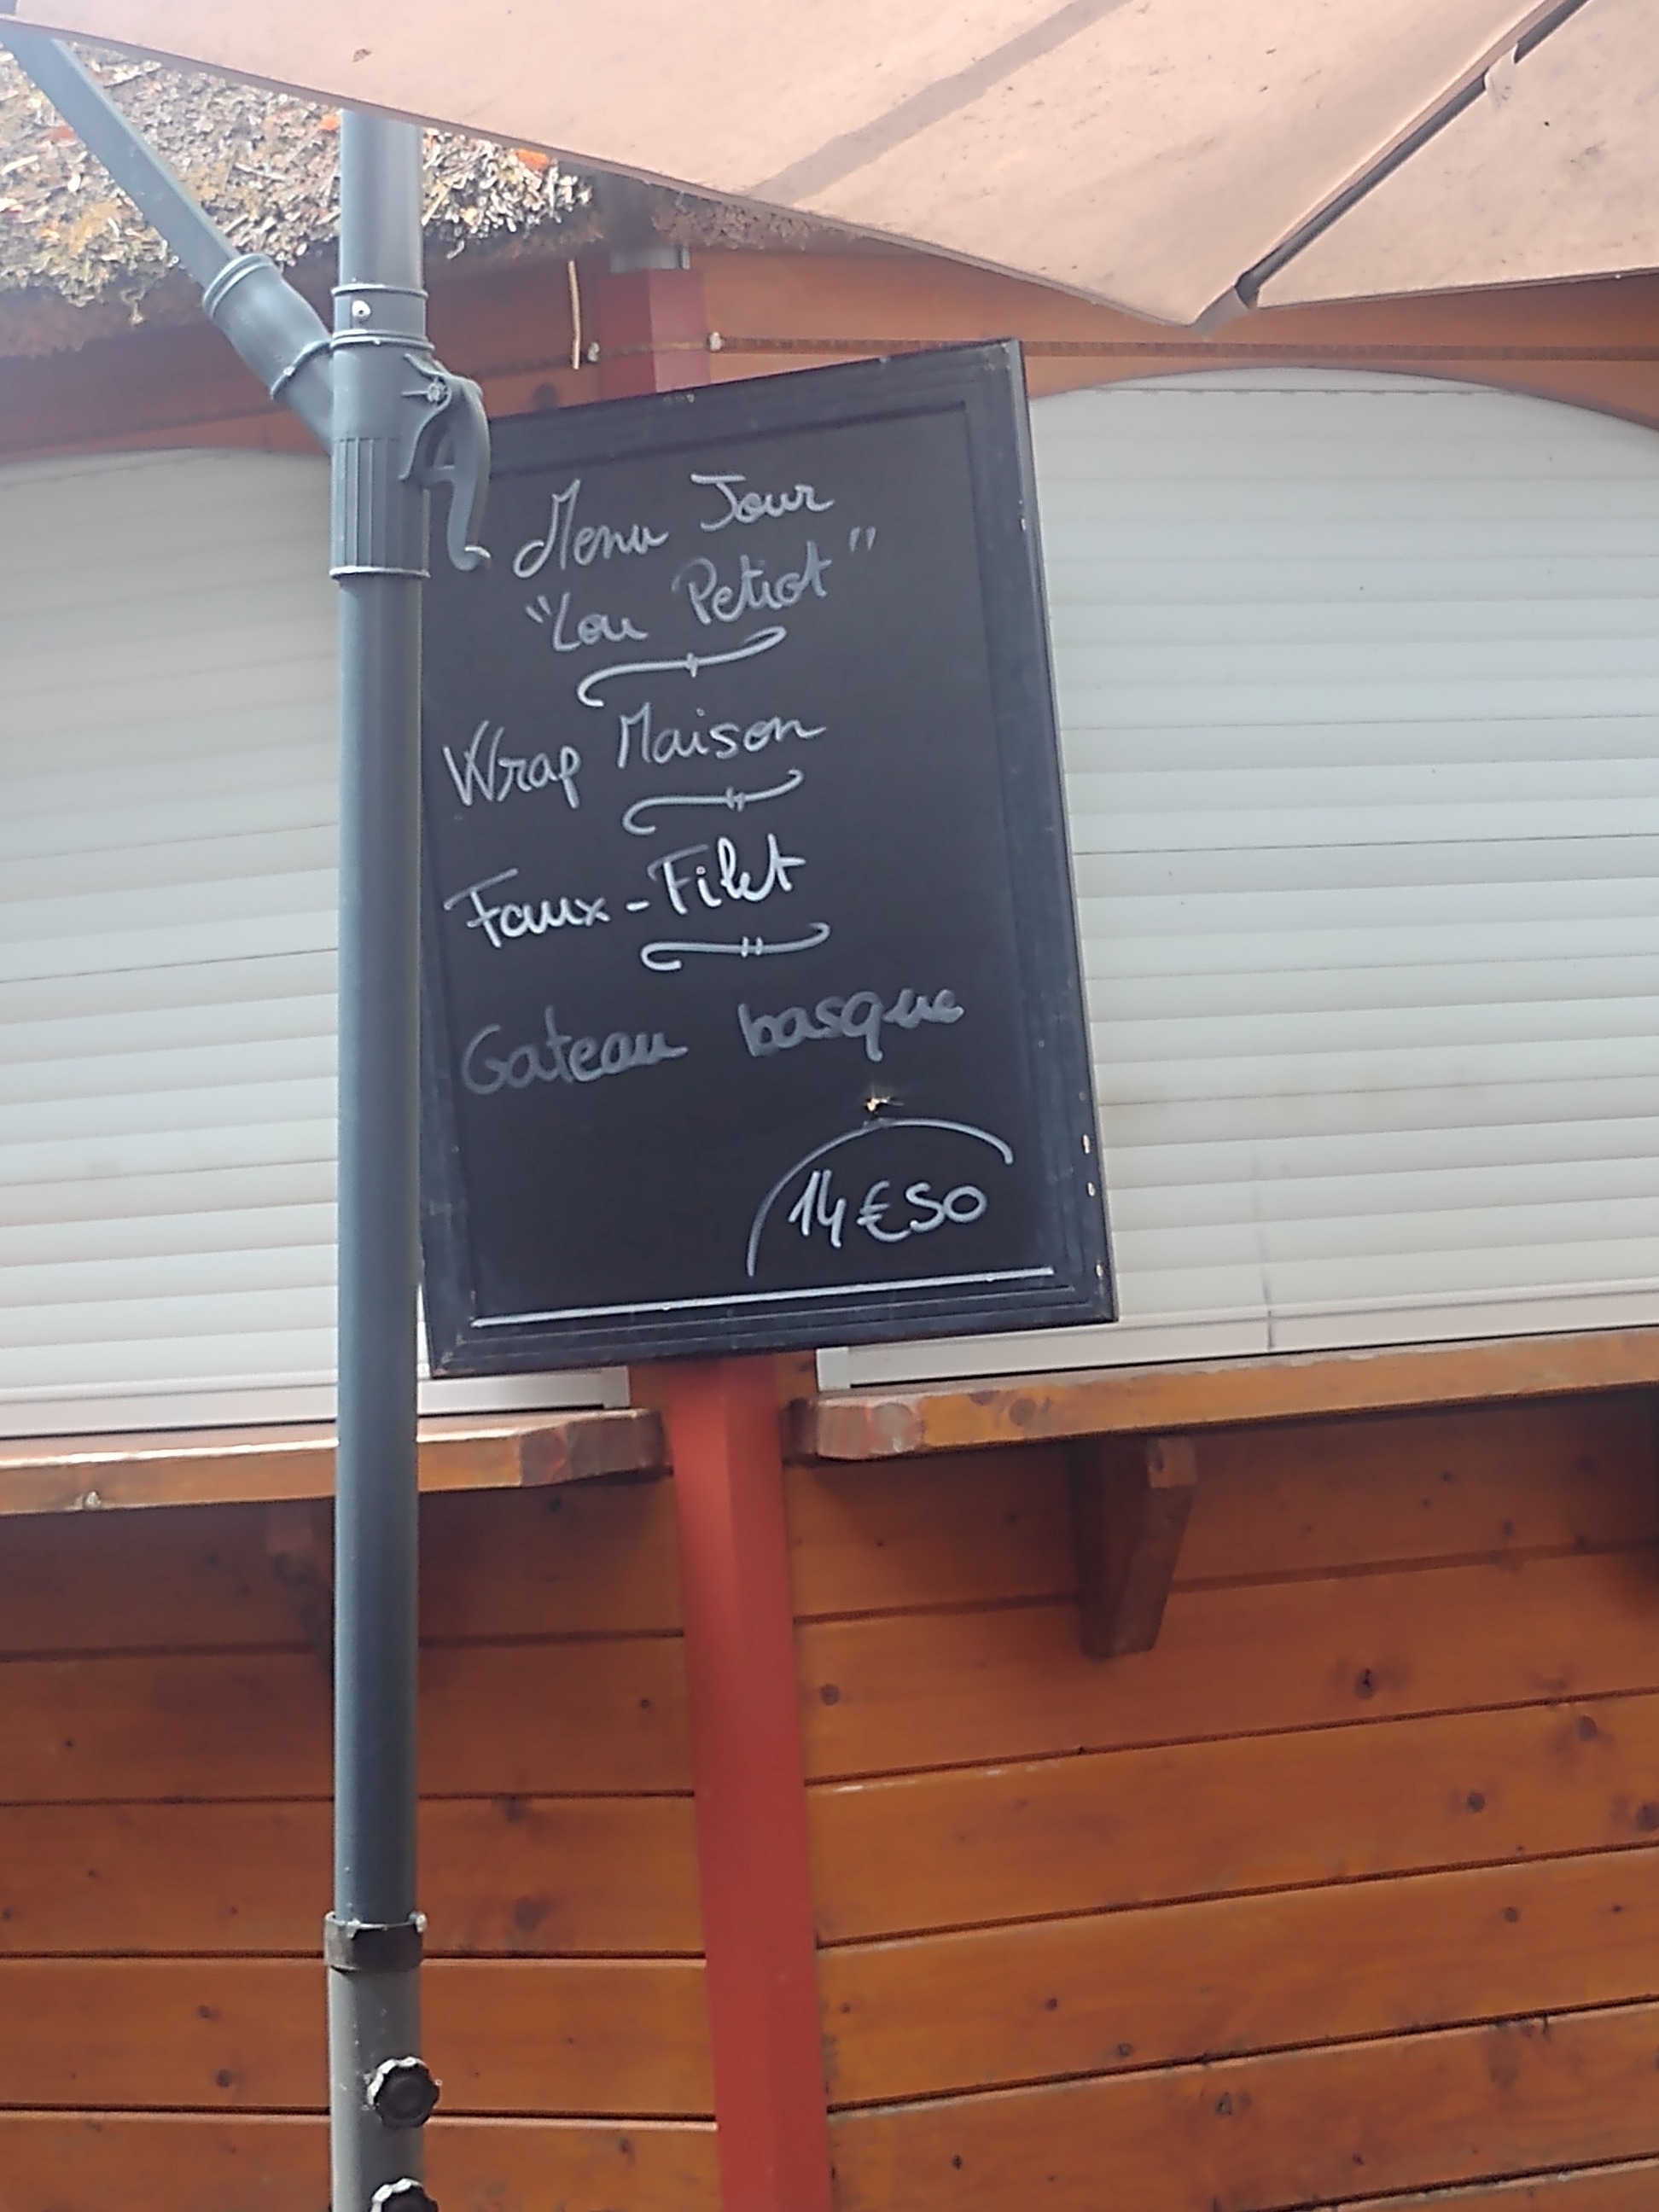 Menu Jour
"Lou Petiot"
Wrap Maison
Faux-Filet
Gateau basque
14€50